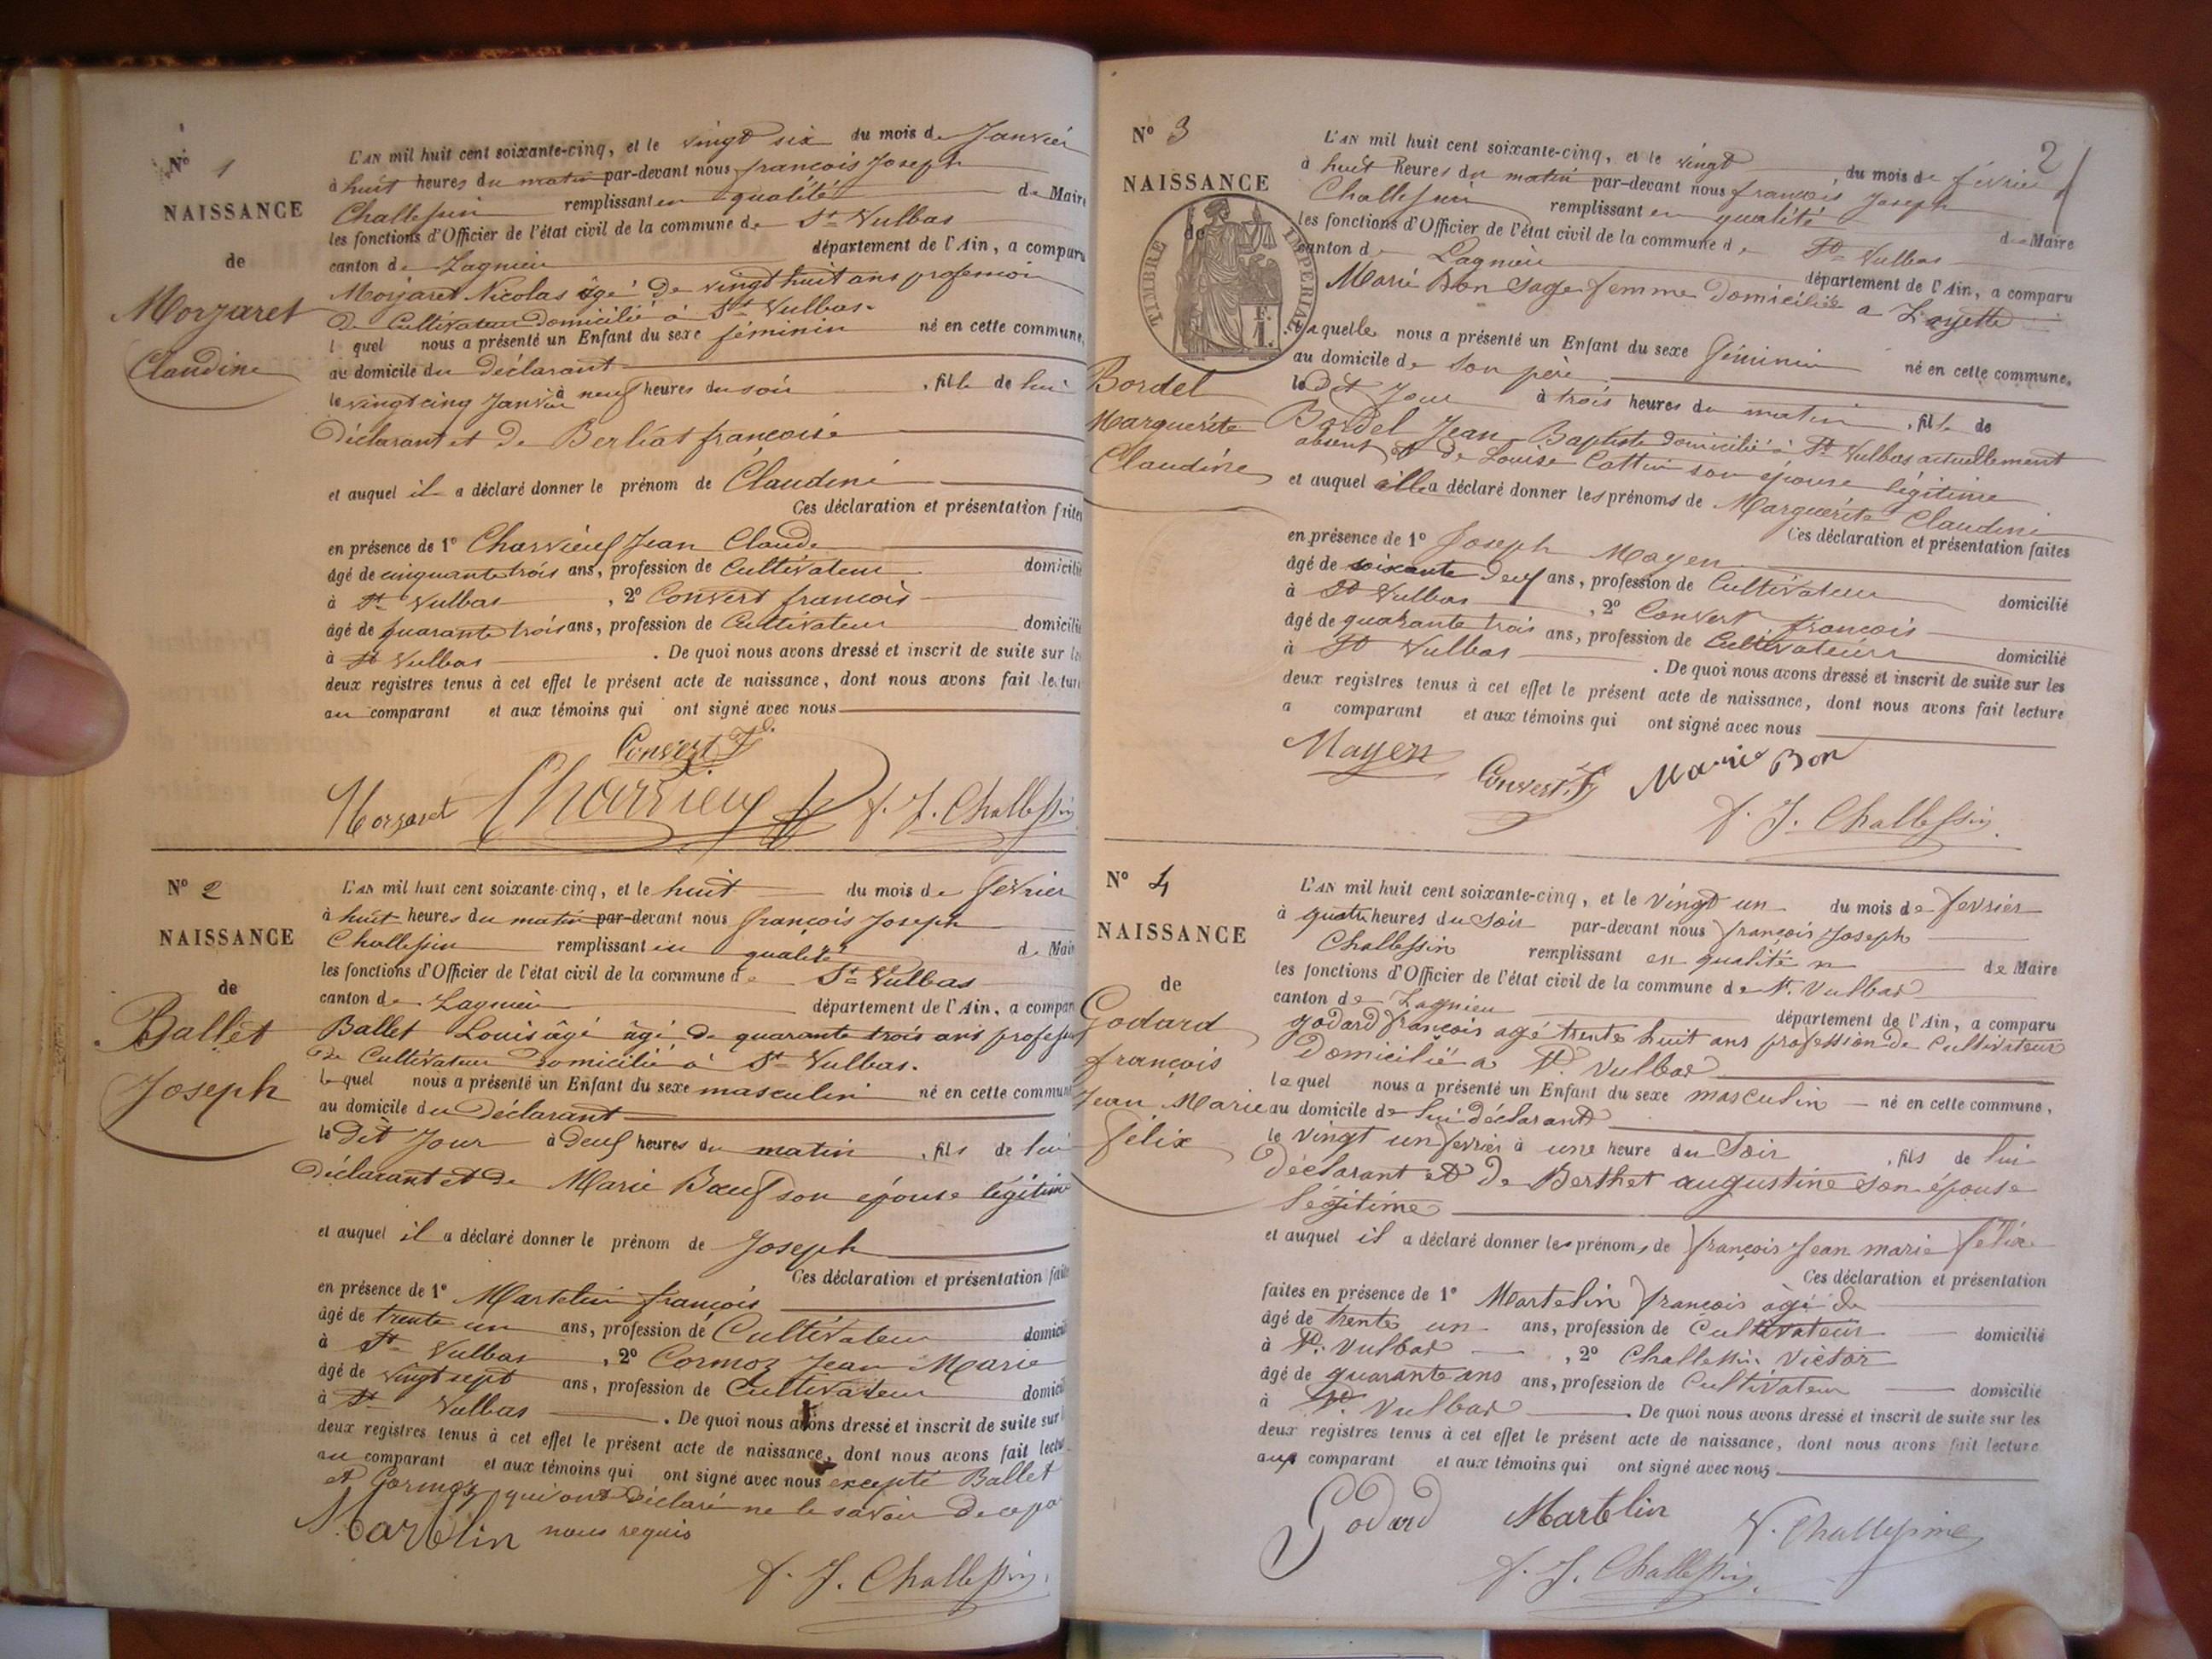 N° 1
NAISSANCE
de
Morzaret
Claudine
L'AN mil huit cent soixante-cinq, et le vingt six du mois de Janvier
à huit heures du matin par-devant nous françois Joseph
Challessin remplissant en qualité de Maire
les fonctions d'Officier de l'état civil de la commune de St Vulbas
canton de Lagnieu département de l'Ain, a comparu
Morzaret Nicolas âgé de vingt huit ans profession
de Cultivateur domicilié à St Vulbas.
lequel nous a présenté un Enfant du sexe féminin né en cette commune,
au domicile du déclarant
le vingt cinq Janvier à neuf heures du soir, fille de lui
déclarant et de Berliat françoise
et auquel il a déclaré donner le prénom de Claudine
Ces déclaration et présentation faites
en présence de 1° Charvieux Jean Claude
âgé de cinquante trois ans, profession de Cultivateur domicilié
à St Vulbas, 2° Convert françois
âgé de quarante trois ans, profession de Cultivateur domicilié
à St Vulbas. De quoi nous avons dressé et inscrit de suite sur les
deux registres tenus à cet effet le présent acte de naissance, dont nous avons fait lecture
au comparant et aux témoins qui ont signé avec nous
Convert
Morzaret Charvieux f. J. Challessin
N° 2
NAISSANCE
de
Ballet
Joseph
L'AN mil huit cent soixante-cinq, et le huit du mois de février
à huit heures du matin par-devant nous françois Joseph
Challessin remplissant en qualité de Maire
les fonctions d'Officier de l'état civil de la commune de St Vulbas
canton de Lagnieu département de l'Ain, a comparu
Ballet Louis âgé âgé de quarante trois ans profession
de Cultivateur domicilié à St Vulbas.
lequel nous a présenté un Enfant du sexe masculin né en cette commune
au domicile du déclarant
le dit Jour à deux heures du matin, fils de lui
déclarant et de Marie Bœuf son épouse légitime
et auquel il a déclaré donner le prénom de Joseph
Ces déclaration et présentation faites
en présence de 1° Martelin françois
âgé de trente un ans, profession de Cultivateur domicilié
à St Vulbas, 2° Cormoz Jean Marie
âgé de vingt sept ans, profession de Cultivateur domicilié
à St Vulbas. De quoi nous avons dressé et inscrit de suite sur les
deux registres tenus à cet effet le présent acte de naissance, dont nous avons fait lecture
au comparant et aux témoins qui ont signé avec nous excepté Ballet
et Cormoz qui ont déclaré ne le savoir de ce par
nous requis
Martelin
f. J. Challessin
2
N° 3
NAISSANCE
de
TIMBRE IMPERIAL
Bordel
Marguerite
Claudine
L'AN mil huit cent soixante-cinq, et le vingt du mois de février
à huit heures du matin par-devant nous françois Joseph
Challessin remplissant en qualité de Maire
les fonctions d'Officier de l'état civil de la commune de St Vulbas
canton de Lagnieu département de l'Ain, a comparu
Marie Bon Sage femme domiciliée a Loyette
laquelle nous a présenté un Enfant du sexe féminin né en cette commune,
au domicile de son père
le dit Jour à trois heures du matin, fille de
Bordel Jean Baptiste domicilié à St Vulbas actuellement
absent et de Louise Cottin son épouse légitime
et auquel elle a déclaré donner les prénoms de Marguerite Claudine
Ces déclaration et présentation faites
en présence de 1° Joseph Mayen
âgé de soixante deux ans, profession de Cultivateur domicilié
à St Vulbas, 2° Convert françois
âgé de quarante trois ans, profession de Cultivateur domicilié
à St Vulbas. De quoi nous avons dressé et inscrit de suite sur les
deux registres tenus à cet effet le présent acte de naissance, dont nous avons fait lecture
a comparant et aux témoins qui ont signé avec nous
Mayen Convert Marie Bon
f. J. Challessin
N° 4
NAISSANCE
de
Godard
françois
Jean Marie
félix
L'AN mil huit cent soixante-cinq, et le vingt un du mois de fevrier
à quatre heures du Soir par-devant nous françois Joseph
Challessin remplissant en qualité de Maire
les fonctions d'Officier de l'état civil de la commune de St. Vulbas
canton de Lagnieu département de l'Ain, a comparu
godard françois agé trente huit ans profession de Cultivateur
domicilié a St. Vulbas
lequel nous a présenté un Enfant du sexe masculin né en cette commune,
au domicile de lui déclarant
le vingt un fevrier à une heure du Soir, fils de lui
déclarant et de Berthet augustine son épouse
légitime
et auquel il a déclaré donner les prénoms de françois Jean marie félix
Ces déclaration et présentation
faites en présence de 1° Martelin françois agé de
âgé de trente un ans, profession de Cultivateur domicilié
à St. Vulbas, 2° Challessin Victor
âgé de quarante ans ans, profession de Cultivateur domicilié
à St. Vulbas. De quoi nous avons dressé et inscrit de suite sur les
deux registres tenus à cet effet le présent acte de naissance, dont nous avons fait lecture
aux comparant et aux témoins qui ont signé avec nous
Godard Martelin V. Challessin
f. J. Challessin